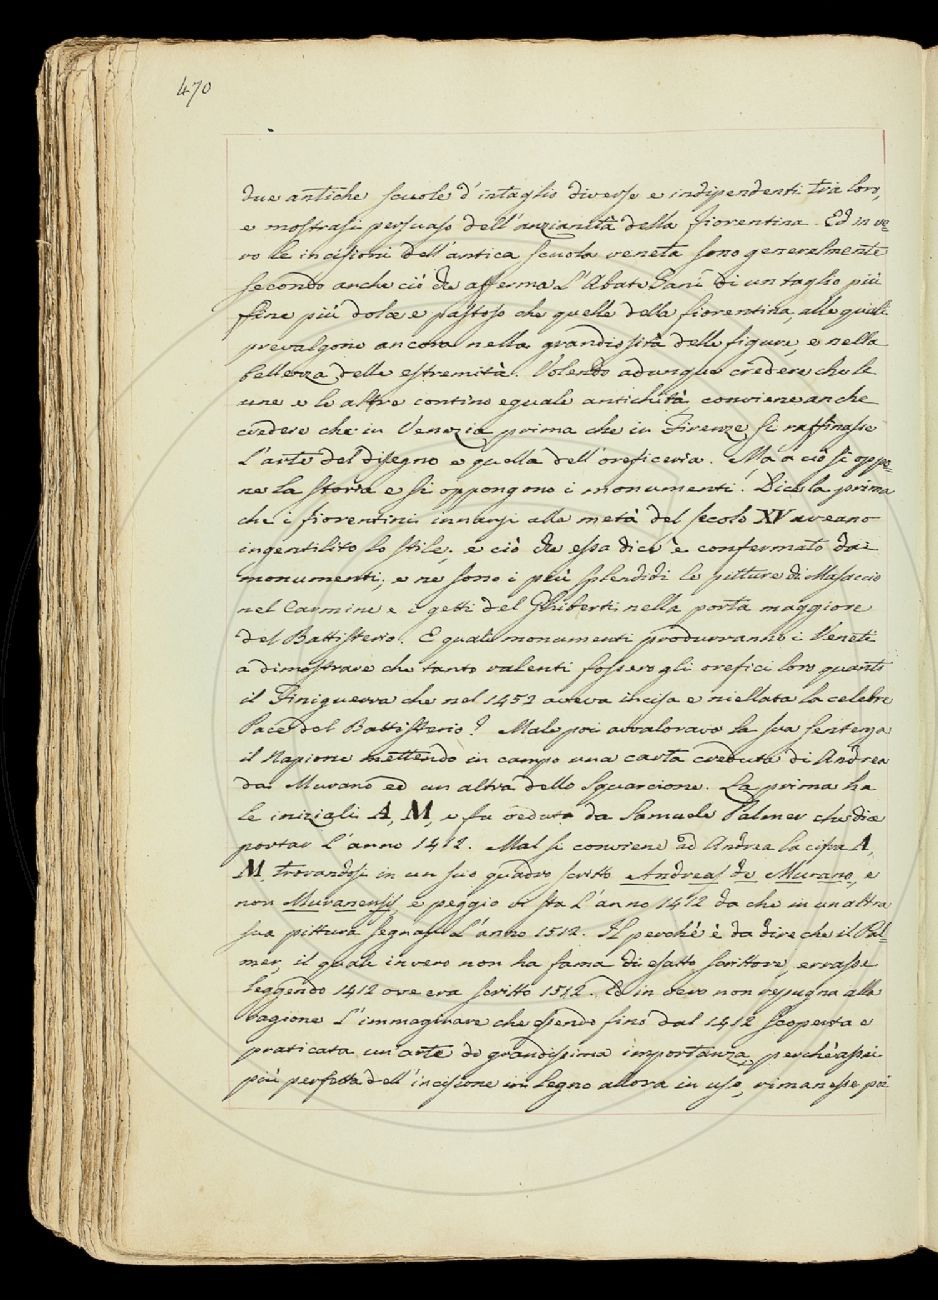 470
due antiche scuole d'intaglio diverse e indipendenti tra loro,
e mostrasi persuaso dell'anzianità della fiorentina. Ed in ve=
ro le incisioni dell'antica scuola veneta sono generalmente
secondo anche ciò che afferma l'Abate Zani di un taglio più
fine più dolce e pastoso che quelle della fiorentina, alle quali
prevalgono ancora nella grandiosità delle figure, e nella
bellezza delle estremità. Volendo adunque credere che le
une e le altre contino eguale antichità conviene anche
credere che in Venezia prima che in Firenze si raffinasse
l'arte del disegno e quella dell'oreficeria. Ma a ciò si oppo=
ne la storia e si oppongono i monumenti. Dice la prima
che i fiorentini innanzi alla metà del secolo XV aveano
ingentilito lo stile; e ciò che essa dice è confermato dai
monumenti; e ne sono i più splendidi le pitture di Masaccio
nel Carmine e i getti del Ghiberti nella porta maggiore
del Battisterio. E quali monumenti produrranno i Veneti
a dimostrare che tanto valenti fossero gli orefici loro quanto
il Finiguerra che nel 1452 aveva incisa e niellata la celebre
Pace del Battisterio? Male poi avvalorava la sua sentenza
il Napione mettendo in campo una carta creduta di Andrea
da Murano ed un altra dello Squarcione. La prima ha
le iniziali A, M, e fu veduta da Samuele Palmer che dice
portar l'anno 1412. Mal si conviene ad Andrea la cifra A,
M, trovandosi in un suo quadro scritto Andreas de Murano, e
non Muranensis, e peggio vi sta l'anno 1412 da che in un altra
sua pittura segnasi l'anno 1512. Il perchè è da dire che il Pal=
mer, il quale invero non ha fama di esatto scrittore, errasse
leggendo 1412 ove era scritto 1512. Ed in vero non repugna alla
ragione l'immaginare che essendo fino dal 1412 scoperta e
praticata un'arte di grandissima importanza, perchè assai
più perfetta dell'incisione in legno allora in uso, rimanesse poi